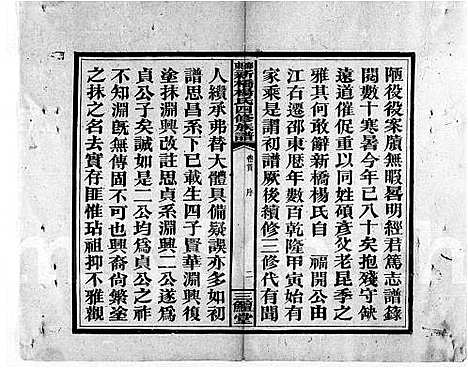 陋役役案牘無暇曷明經君篤志譜錄
閱數十寒暑今年已八十矣抱殘守缺
遠道催促重以同姓碩彥父老昆季之
雅其何敢辭新橋楊氏自　福開公由
江右遷邵東歷年數百乾隆甲寅始有
家乘是謂初譜厥後續修三修代有聞
新橋楊氏四修族譜
卷首　序
二
三鱣堂
人續承弗替大體具備疑誤亦多如初
譜思昌系下已載生四子賈華淵興復
塗抹淵興改註思貞系淵興二公遂爲
貞公子矣誠如是二公均爲貞公之祚
不知淵旣無傳固不可也興裔尚繁塗
之抹之名去實存匪惟玷祖抑不雅觀